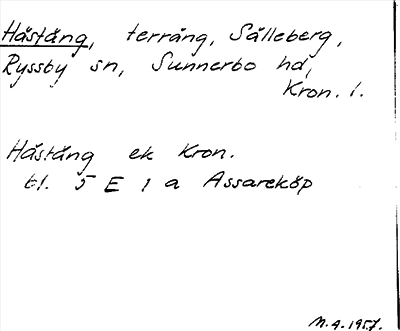 Hästång, terräng, Sålleberg,
Ryssby sn, Sunnerbo hd,
Kron. l.
Häståäng ek Kron.
bl. 5 E 1 a Assareköp
M.A. 1957.